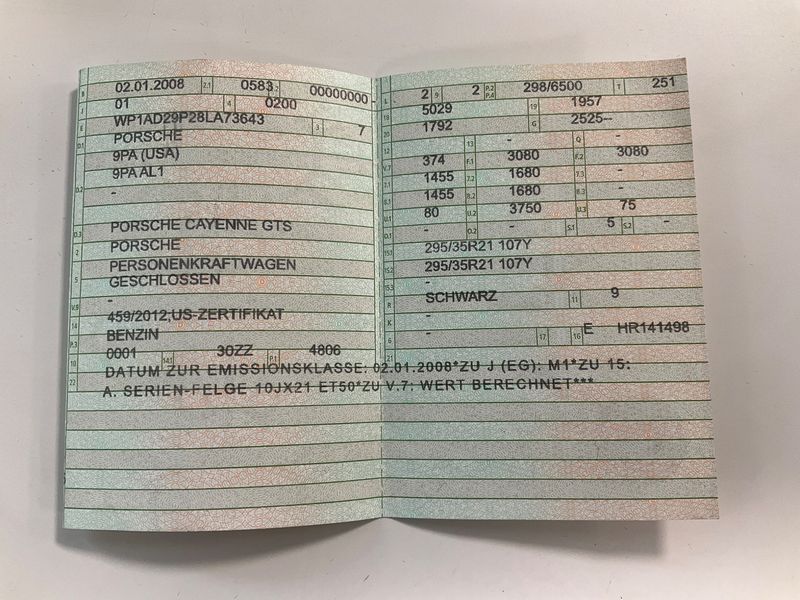 02.01.2008 2.1 0583 2.2 00000000-
01 4 0200
WP1AD29P28LA73643 3 7
PORSCHE
9PA (USA)
9PA AL1
-
PORSCHE CAYENNE GTS
PORSCHE
PERSONENKRAFTWAGEN
GESCHLOSSEN
-
459/2012;US-ZERTIFIKAT
BENZIN
0001 14.1 30ZZ P.1 4806
2 9 2 P.2 P.4 298/6500 T 251
5029 19 1957
1792 G 2525--
13 - Q -
374 F.1 3080 F.2 3080
1455 7.2 1680 7.3 -
1455 8.2 1680 8.3 -
80 U.2 3750 U.3 75
- O.2 - S.1 5 S.2 -
295/35R21 107Y
295/35R21 107Y
-
SCHWARZ 11 9
-
- 17 16 E HR141498
DATUM ZUR EMISSIONSKLASSE: 02.01.2008*ZU J (EG): M1*ZU 15:
A. SERIEN-FELGE 10JX21 ET50*ZU V.7: WERT BERECHNET***